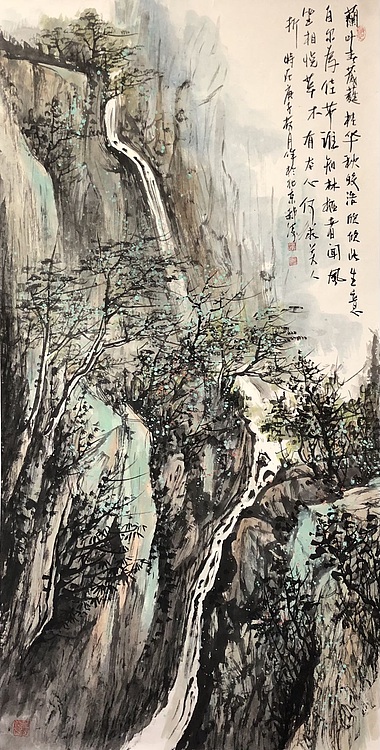 蘭叶春葳蕤桂华秋皎潔欣欣此生意
自尔為佳节誰知林栖者聞風
坐相悦草木有本心何求美人
折 時在庚秋月於北京